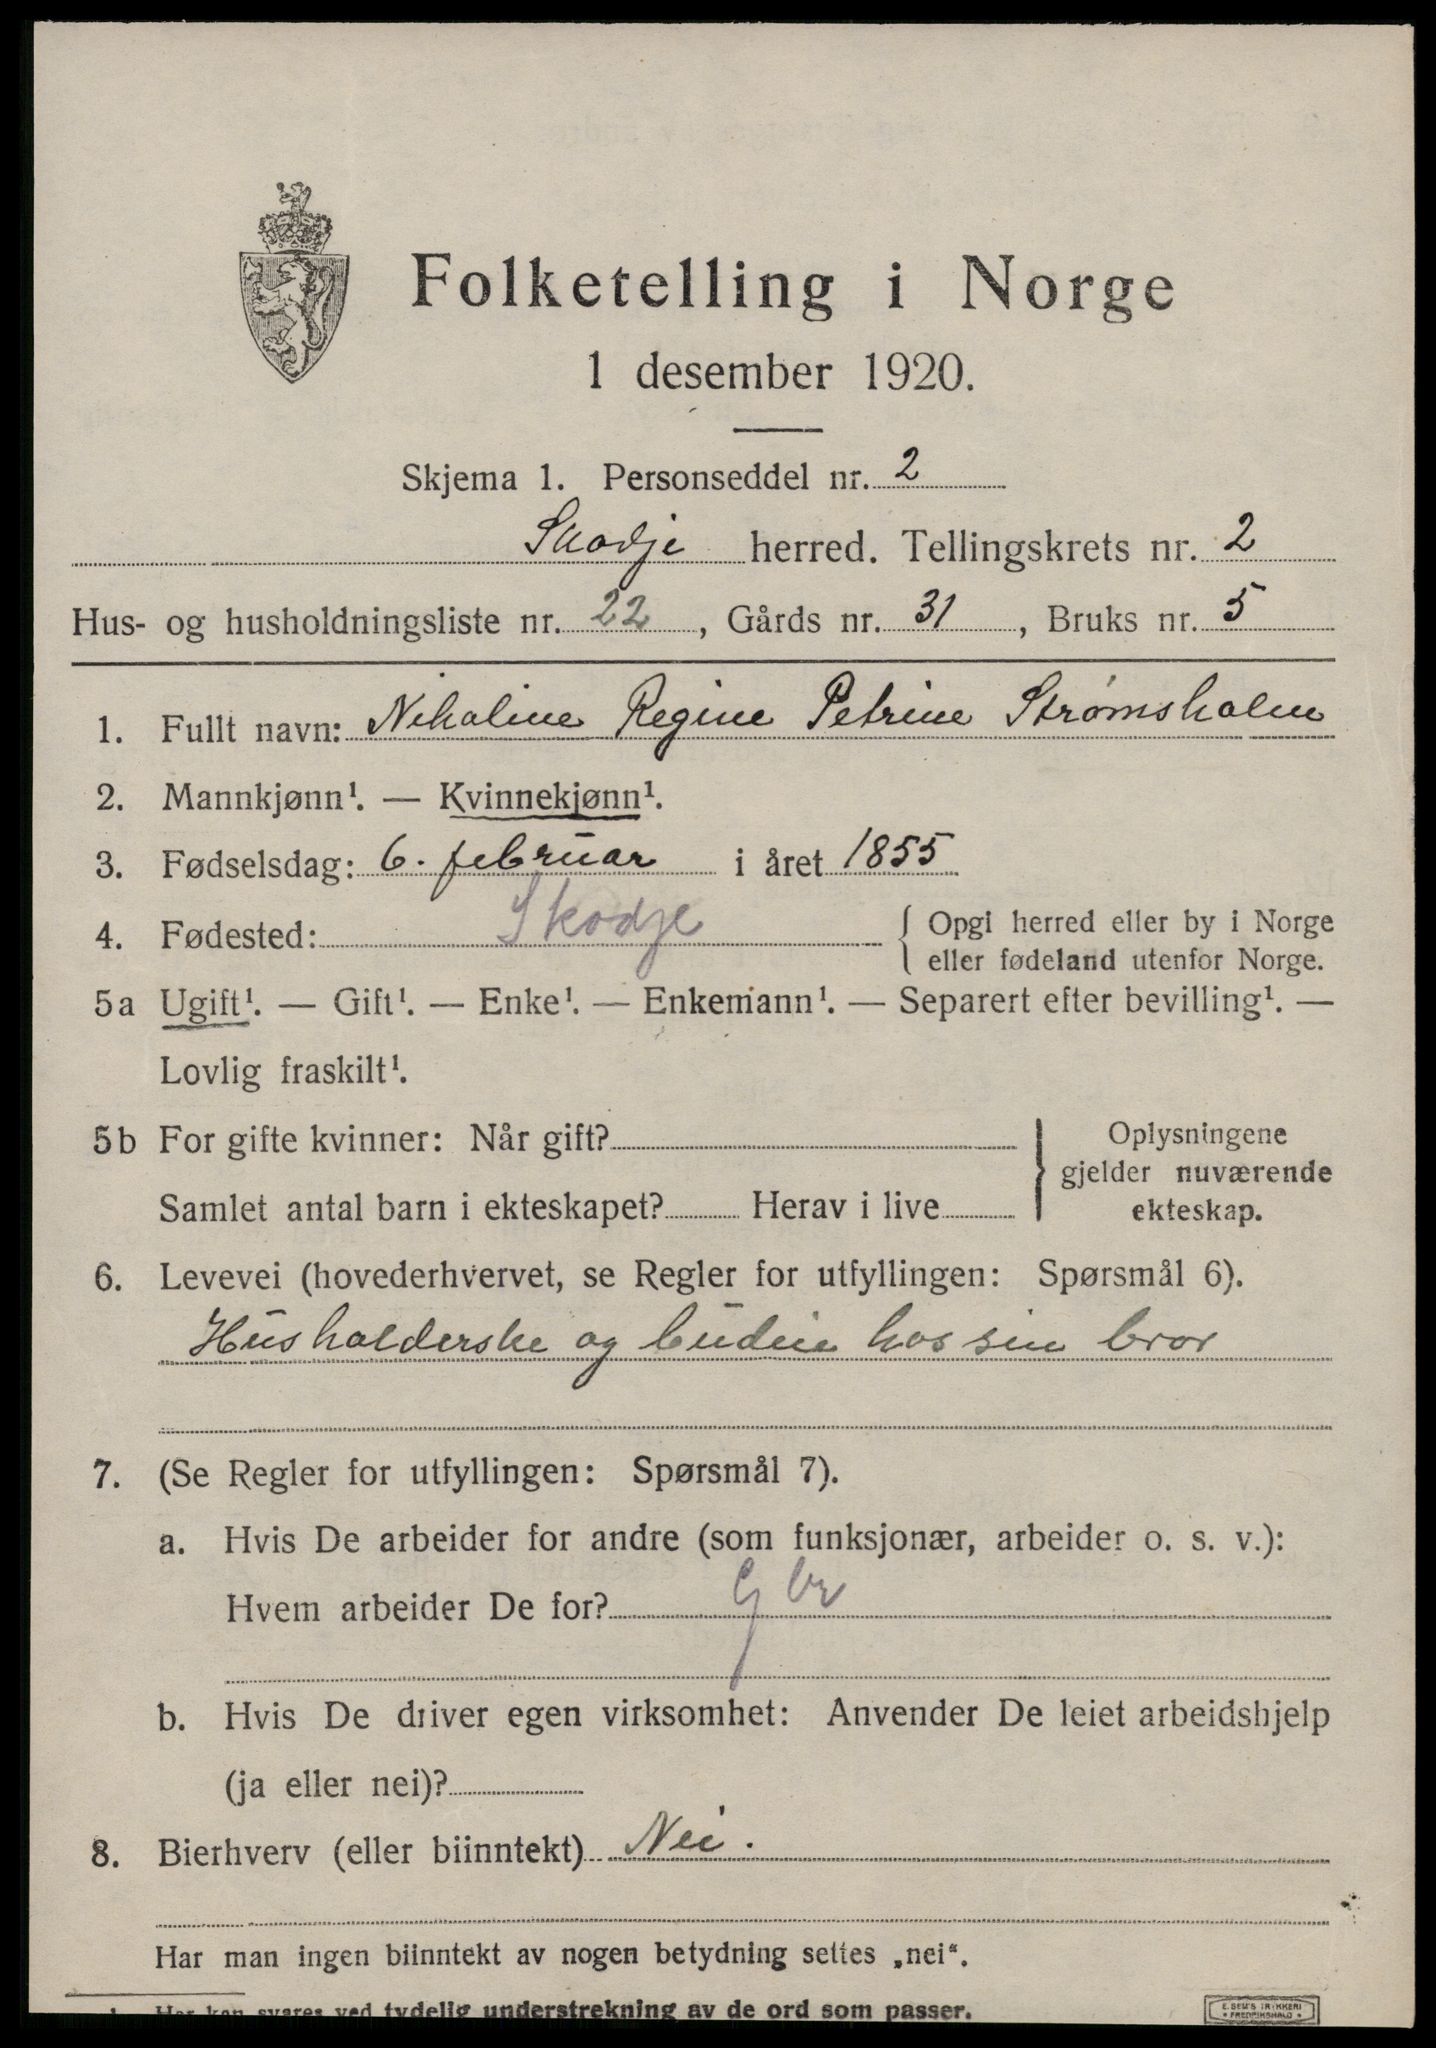 Folketelling i Norge
1 desember 1920.
Skjema 1. Personseddel nr. 2
Skodje herred. Tellingskrets nr. 2
Hus- og husholdningsliste nr. 22, Gårds nr. 31, Bruks nr. 5
1. Fullt navn: Nikoline Regine Petrine Strømsholm
2. Mannkjønn¹. — Kvinnekjønn¹.
3. Fødselsdag: 6. februar i året 1855
4. Fødested: Skodje { Opgi herred eller by i Norge
eller fødeland utenfor Norge.
5a Ugift¹. — Gift¹. — Enke¹. — Enkemann¹. — Separert efter bevilling¹. —
Lovlig fraskilt¹.
5b For gifte kvinner: Når gift? } Oplysningene
gjelder nuværende
Samlet antal barn i ekteskapet? Herav i live ekteskap.
6. Levevei (hovederhvervet, se Regler for utfyllingen: Spørsmål 6).
Husholderske og budeie hos sin bror
7. (Se Regler for utfyllingen: Spørsmål 7).
a. Hvis De arbeider for andre (som funksjonær, arbeider o. s. v.):
Hvem arbeider De for? Gbr
b. Hvis De driver egen virksomhet: Anvender De leiet arbeidshjelp
(ja eller nei)?
8. Bierhverv (eller biinntekt) Nei.
Har man ingen biinntekt av nogen betydning settes „nei“.
¹ Her kan svares ved tydelig understrekning av de ord som passer.
E. SEM'S TRYKKERI
FREDRIKSHALD